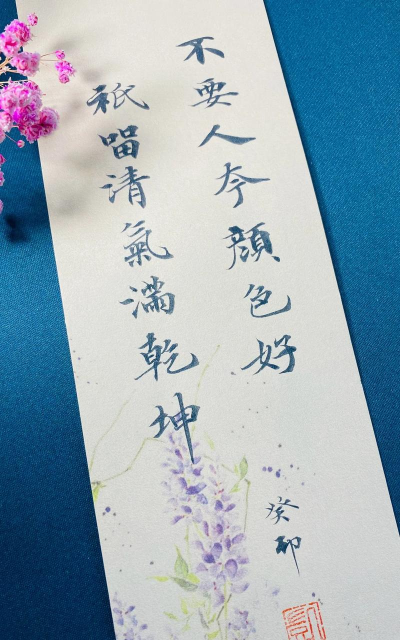 不要人夸顔色好
袛留清氣满乾坤
癸卯